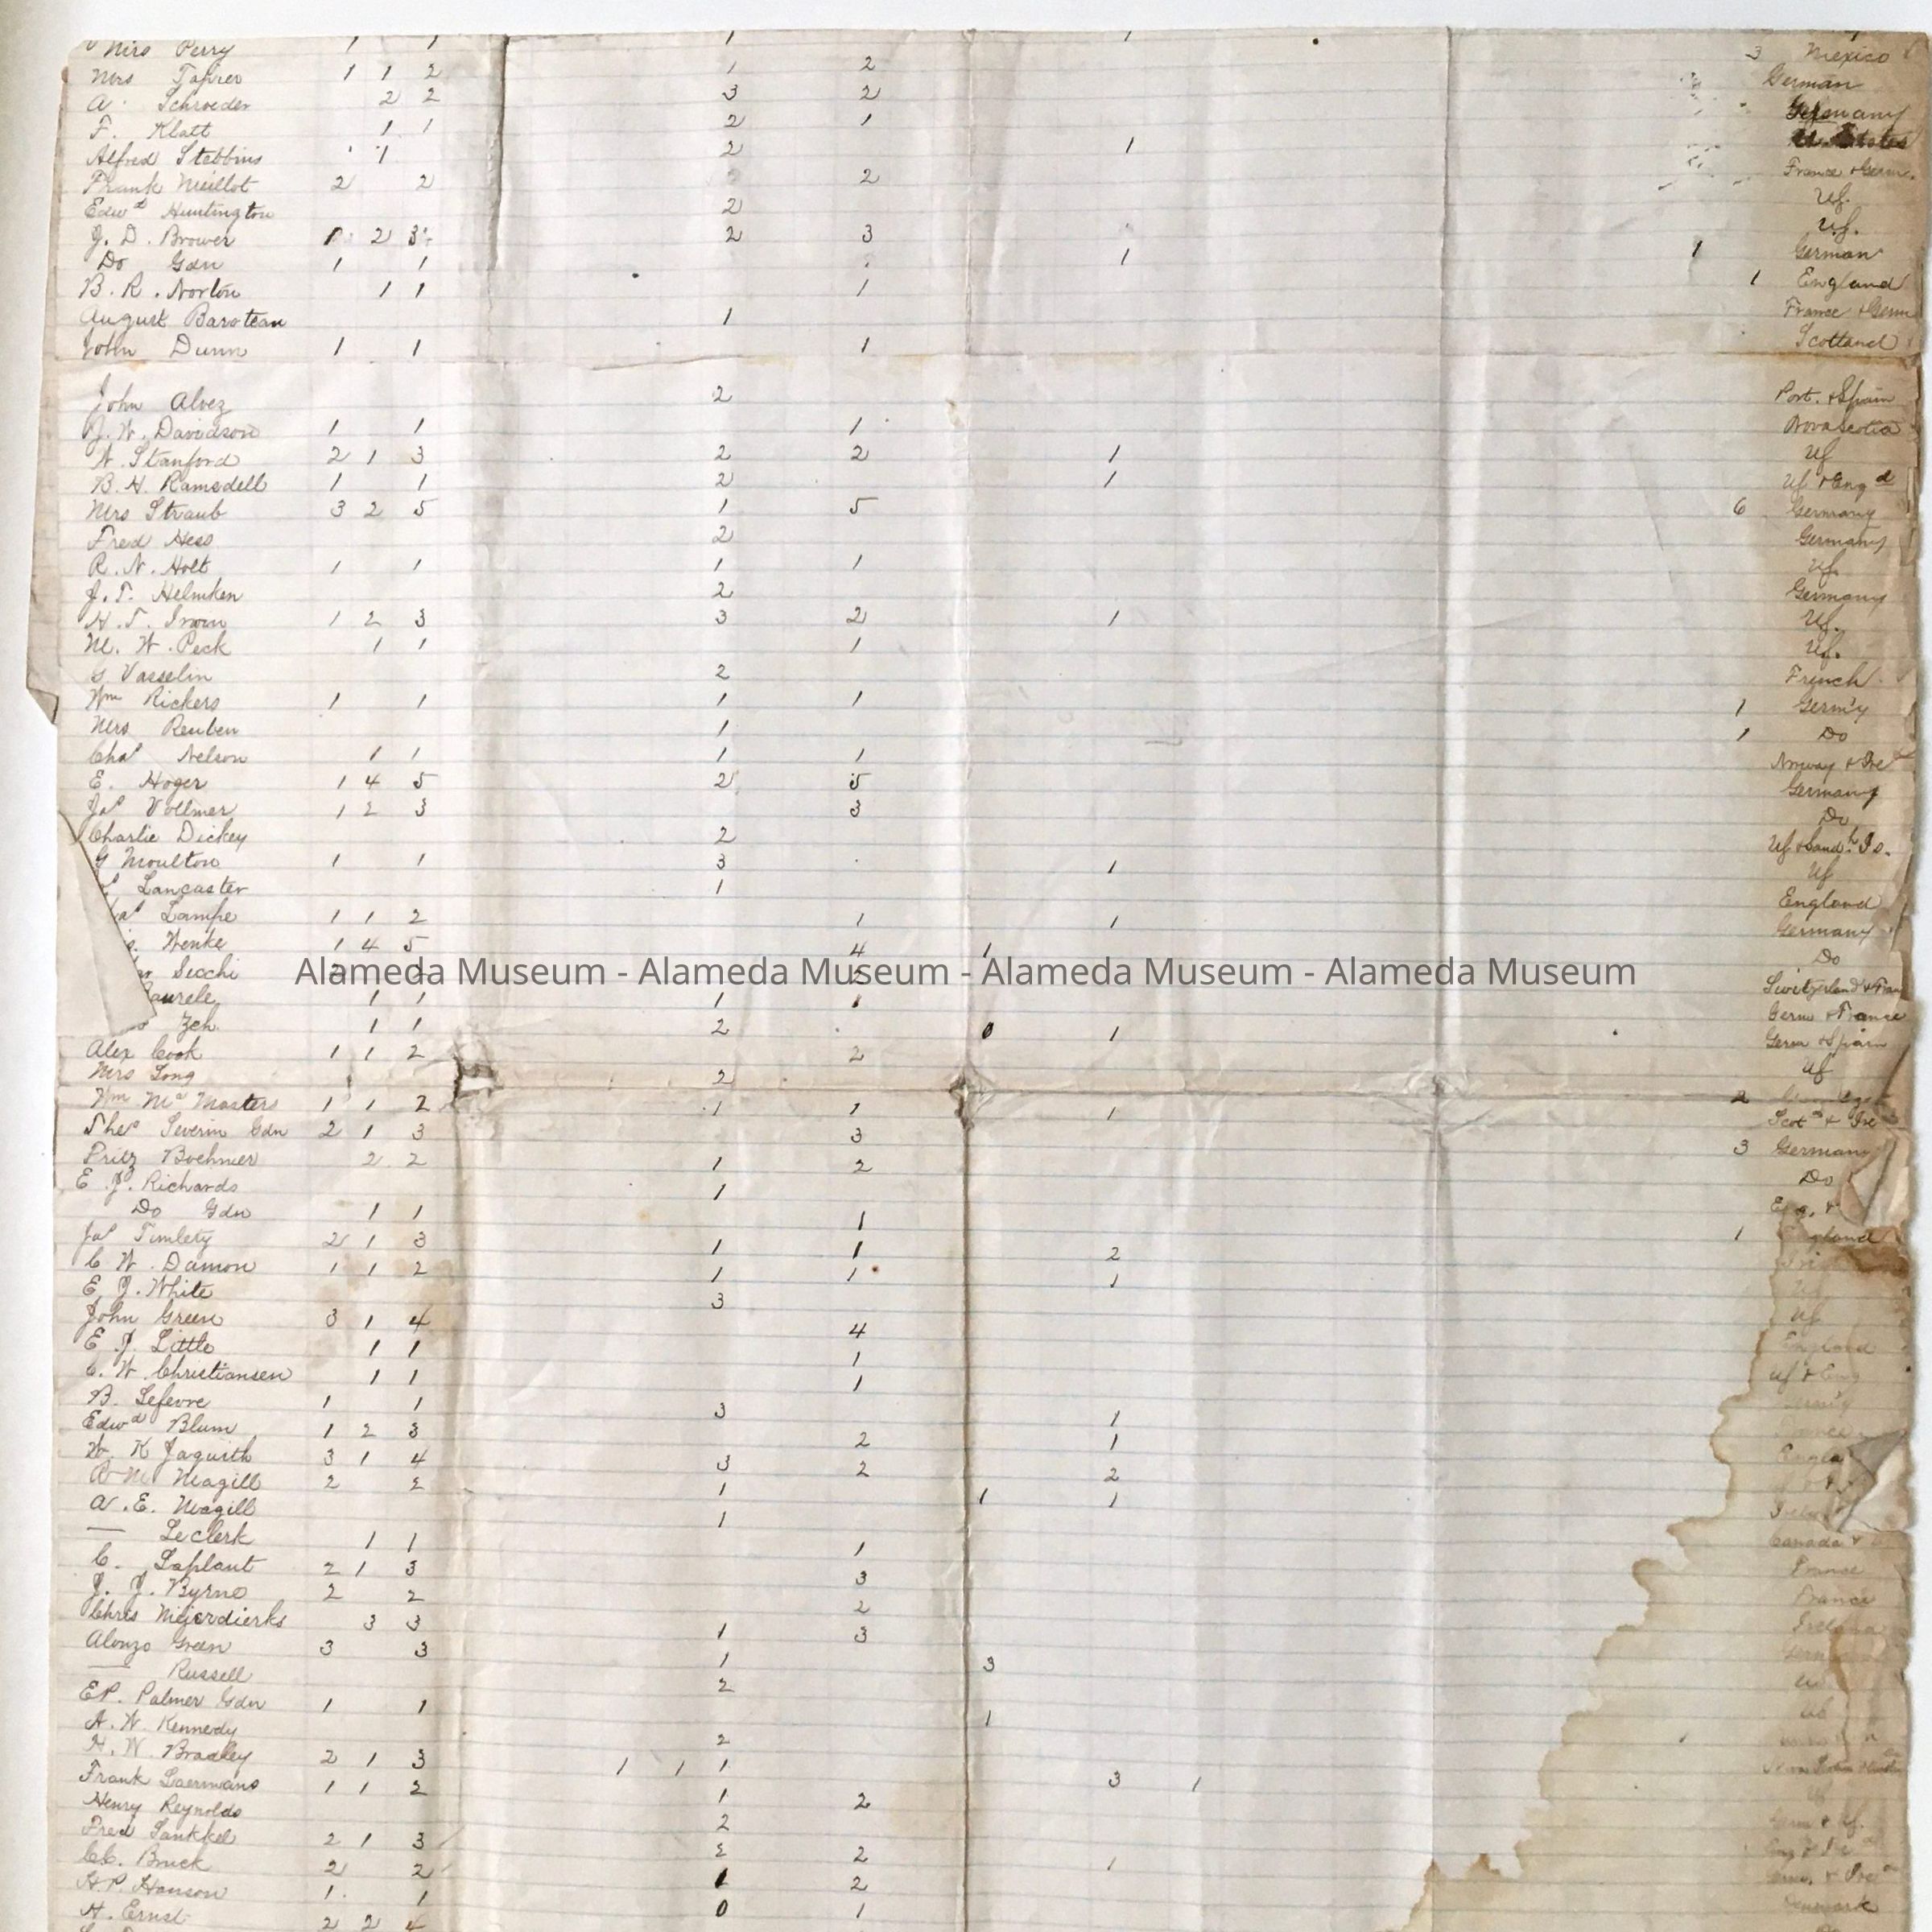 Mrs Perry 1 1 1 1 3 Mexico
Mrs 1 1 2 1 2 German
A. Schroeder 2 2 3 2 Germany
F. Klatt 1 1 2 1
Alfred Stebbins 1 2 1
Frank Meillot 2 2 2 France + Germ.
Edwd Huntington 2 Uf.
J. D. Brower 1 2 3 2 3 Uf.
Do Gdn 1 1 1 1 German
B. R. Norton 1 1 1 1 England
August Baroteau 1 France + Germ
John Dunn 1 1 1 Scotland
John Alvez 2 Port. + Spain
J. W. Davidson 1 1 1 Nova Scotia
W. Stanford 2 1 3 2 2 1 Uf
B. H. Ramsdell 1 1 2 1 Uf + Engd
Mrs Straub 3 2 5 1 5 6 Germany
Fred Hess 2 Germany
R. N. Holt 1 1 1 1 Uf.
J. T. Helmken 2 Germany
H. T. Irwin 1 2 3 3 2 1 Uf.
M. W. Peck 1 1 1 Uf.
G Vasselin 2 French
Wm Rickers 1 1 1 1 1 Germ'y
Mrs Reuben 1 1 Do
Chas Nelson 1 1 1 1 Norway + Ire
E. Hoger 1 4 5 2 5 Germany
Jas Vollmer 1 2 3 3 Do
Charlie Dickey 2 Uf + Sandh Is.
G Moulton 1 1 3 1 Uf
Lancaster 1 England
Lampe 1 1 2 1 1 Germany
Wenke 1 4 5 4 1 Do
Secchi 2 Switzerland + Fran
Alameda Museum - Alameda Museum - Alameda Museum - Alameda Museum
1 1 1 1 Germ + France
Zeh 1 1 2 0 1 Germ + Spain
Alex Cook 1 1 2 2 Uf
Mrs Long 2 2
Wm McMasters 1 1 2 1 1 1 Scotd + Ire
Theo Severin Gdn 2 1 3 3 3 Germany
Fritz Boehmer 2 2 1 2 Do
E. J. Richards 1 Eng. +
Do Gdn 1 1 1 1 England
Jas Timlety 2 1 3 1 1 2
C. W. Damon 1 1 2 1 1 1 Uf
E. J. White 3 Uf
John Green 3 1 4 4 England
E. J. Little 1 1 1 Uf + Eng
C. W. Christiansen 1 1 1
B. Lefevre 1 1 3 1
Edwd Blum 1 2 3 2 1
W. K Jaquith 3 1 4 3 2 2
R. M. Magill 2 2 1 1 1
A. E. Magill 1 Canada +
— Leclerk 1 1 1 France
C. Laplant 2 1 3 3 France
J. J. Byrne 2 2 2 Ireland
Chris Mejerdierks 3 3 1 3
Alonzo Green 3 3 1 3
— Russell 2
E P. Palmer Gdn 1 1 1
A. W. Kennedy 2
H. W. Bradley 2 1 3 1 1 1 3 1
Frank Laermans 1 1 2 1 2
Henry Reynolds 2
Fred Lankkel 2 1 3 2 2 1
C. C. Bruck 2 2 1 2
H. P. Hanson 1 1 0 1 Denmark
H. Ernst 2 2 4